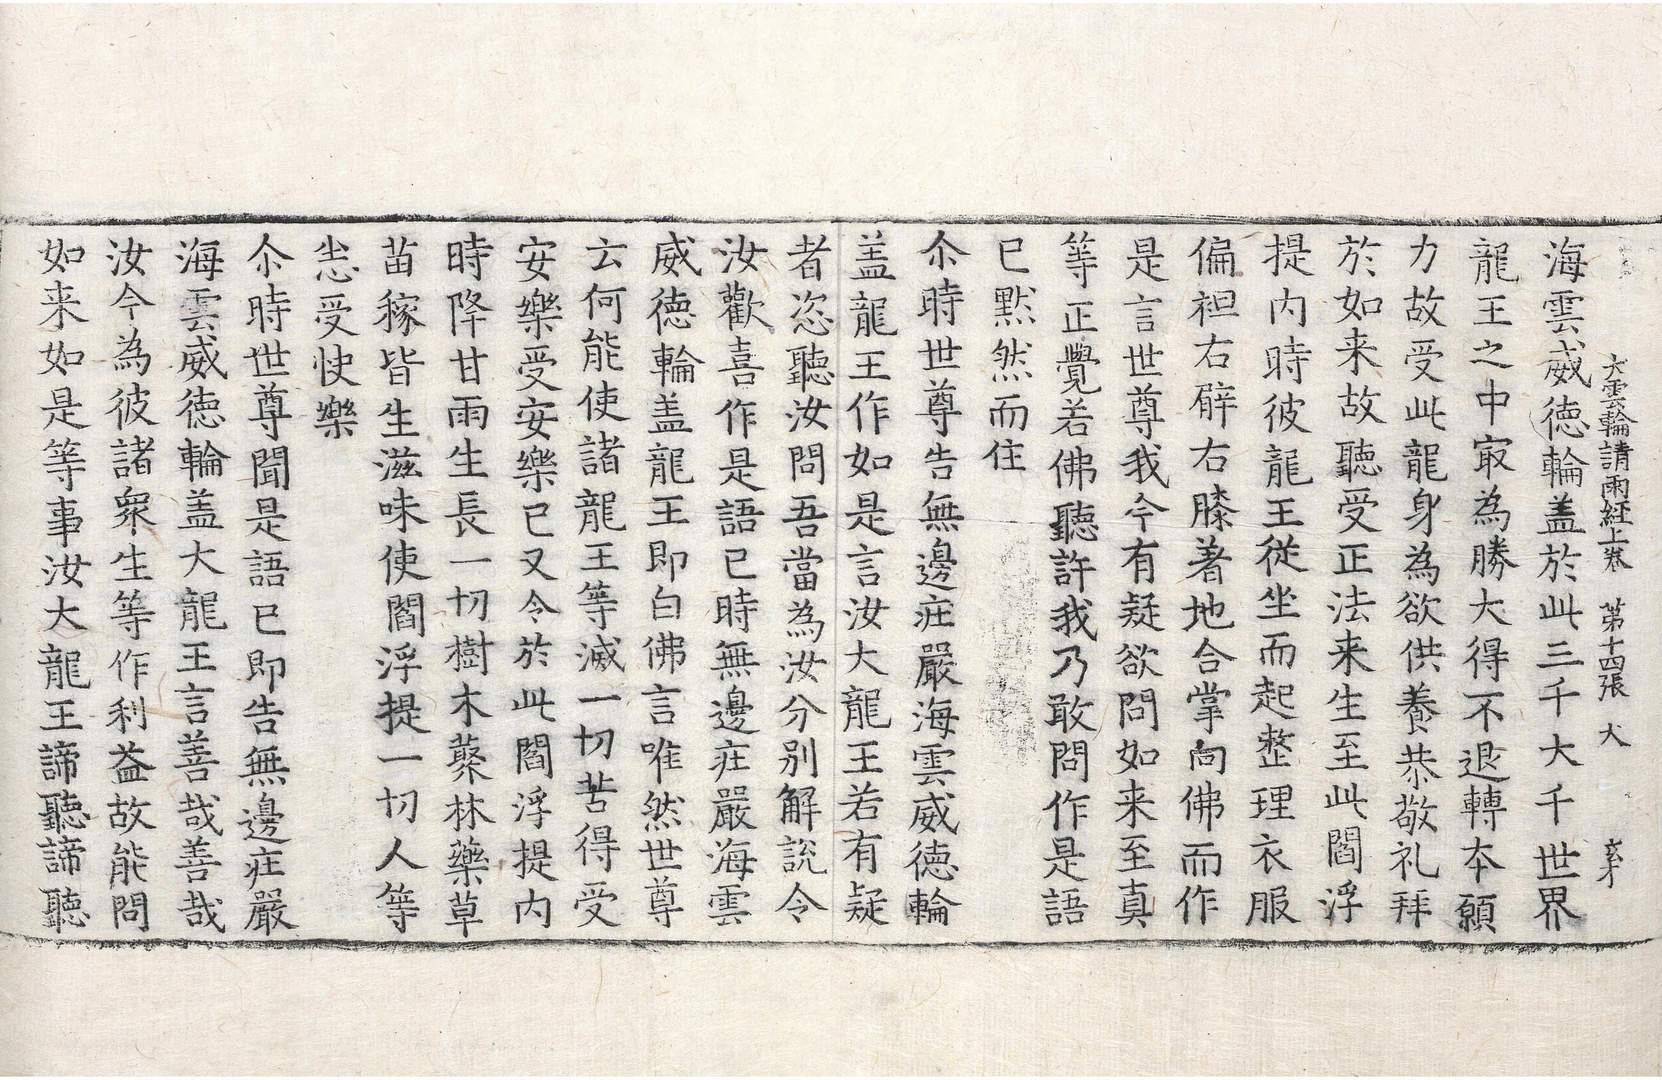 大雲輪請雨経上卷 第十四張 大
海雲威徳輪盖於此三千大千世界
龍王之中㝡為勝大得不退轉本願
力故受此龍身為欲供養恭敬礼拜
於如来故聽受正法来生至此閻浮
提内時彼龍王従坐而起整理衣服
偏袒右臂右膝著地合掌向佛而作
是言世尊我今有疑欲問如来至真
等正覺若佛聽許我乃敢問作是語
已黙然而住
尒時世尊告無邊庄嚴海雲威徳輪
盖龍王作如是言汝大龍王若有疑
者恣聽汝問吾當為汝分別解説令
汝歡喜作是語已時無邊庄嚴海雲
威徳輪盖龍王即白佛言唯然世尊
云何能使諸龍王等滅一切苦得受
安樂受安樂已又令於此閻浮提内
時降甘雨生長一切樹木藂林藥草
苗稼皆生滋味使閻浮提一切人等
悉受快樂
尒時世尊聞是語已即告無邊庄嚴
海雲威徳輪盖大龍王言善哉善哉
汝今為彼諸衆生等作利益故能問
如来如是等事汝大龍王諦聽諦聽